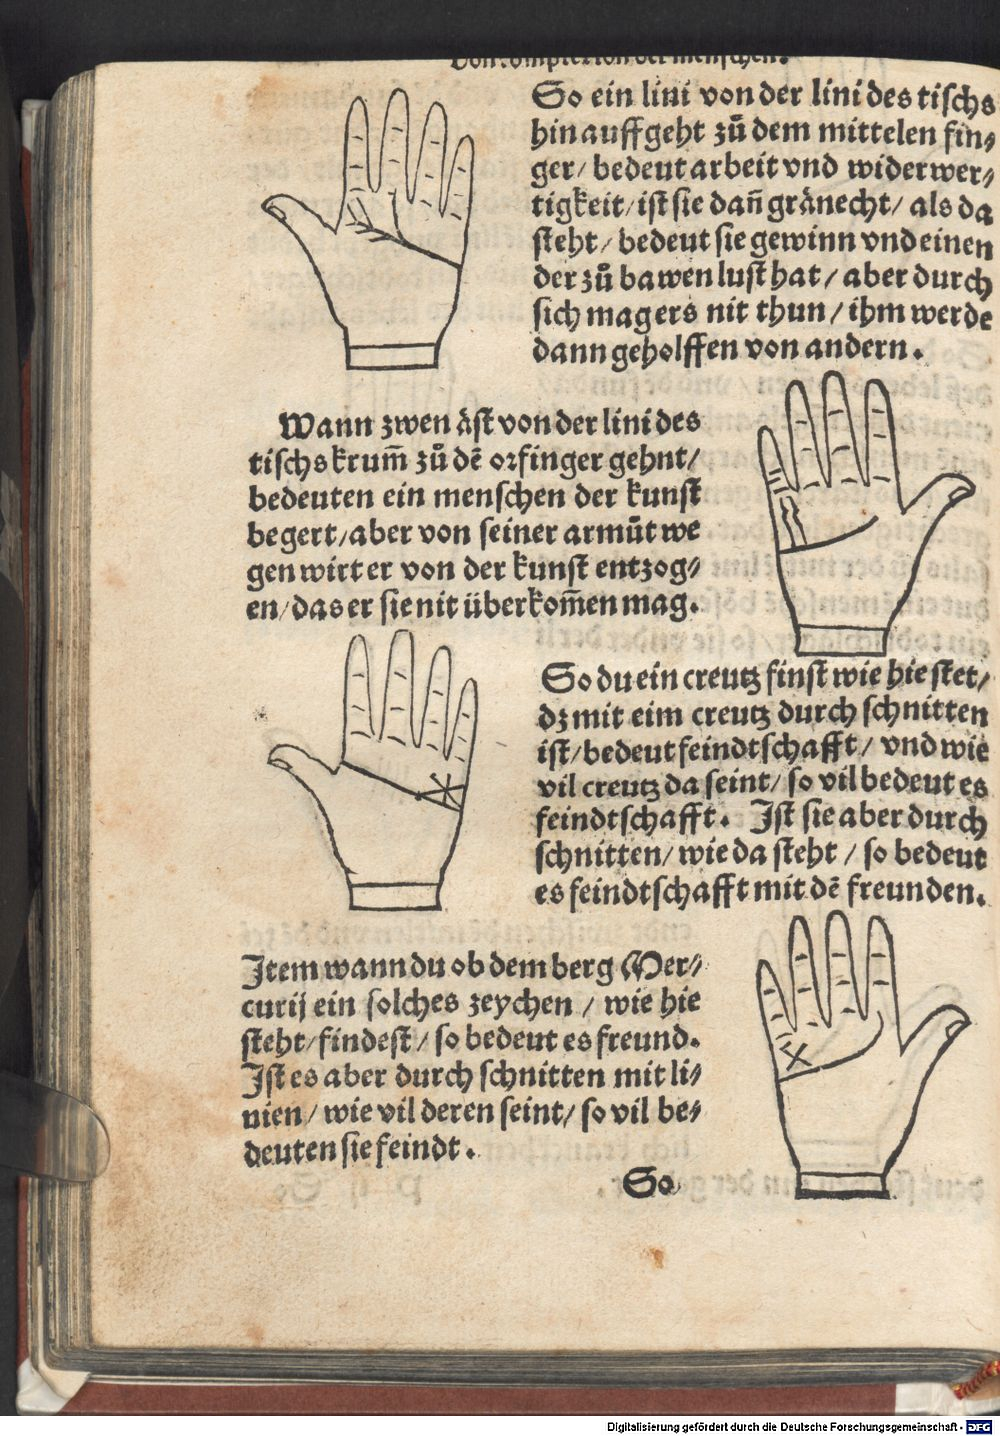 Von complexion der menschen.
So ein lini von der lini des tischs
hin auff geht zů dem mittelen fin⸗
ger/ bedeut arbeit vnd widerwer⸗
tigkeit/ ist sie dañ gränecht/ als da
steht/ bedeut sie gewinn vnd einen
der zů bawen lust hat/ aber durch
sich mag ers nit thun/ ihm werde
dann geholffen von andern.
Wann zwen äst von der lini des
tischs krum̃ zů dē orfinger gehnt/
bedeuten ein menschen der kunst
begert/ aber von seiner armůt we
gen wirt er von der kunst entzog⸗
en/ das er sie nit überkom̃en mag.
So du ein creutz finst wie hie stet/
dz mit eim creutz durch schnitten
ist/ bedeut feindtschafft/ vnd wie
vil creutz da seint/ so vil bedeut es
feindtschafft. Ist sie aber durch
schnitten/ wie da steht/ so bedeut
es feindtschafft mit dē freunden.
Item wann du ob dem berg Mer⸗
curij ein solches zeychen/ wie hie
steht/ findest/ so bedeut es freund.
Ist es aber durch schnitten mit li⸗
nien/ wie vil deren seint/ so vil be⸗
deuten sie feindt.
So
Digitalisierung gefördert durch die Deutsche Forschungsgemeinschaft - DFG